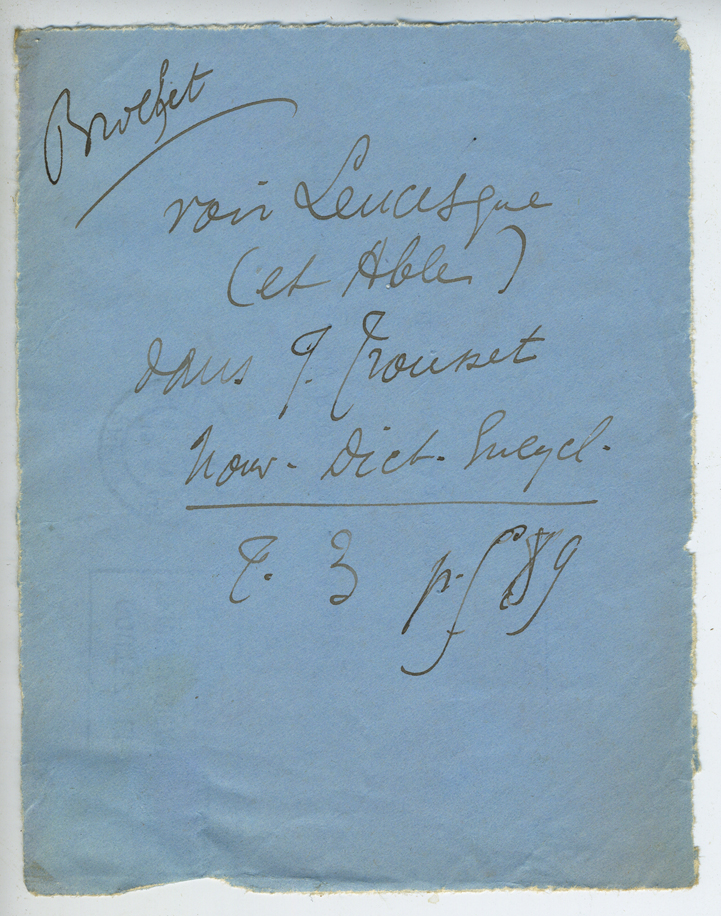 Brochet
voir Leucisque
(et Able)
dans J. Trousset
Nouv. Dict. Encycl.
T. 3 p. 589